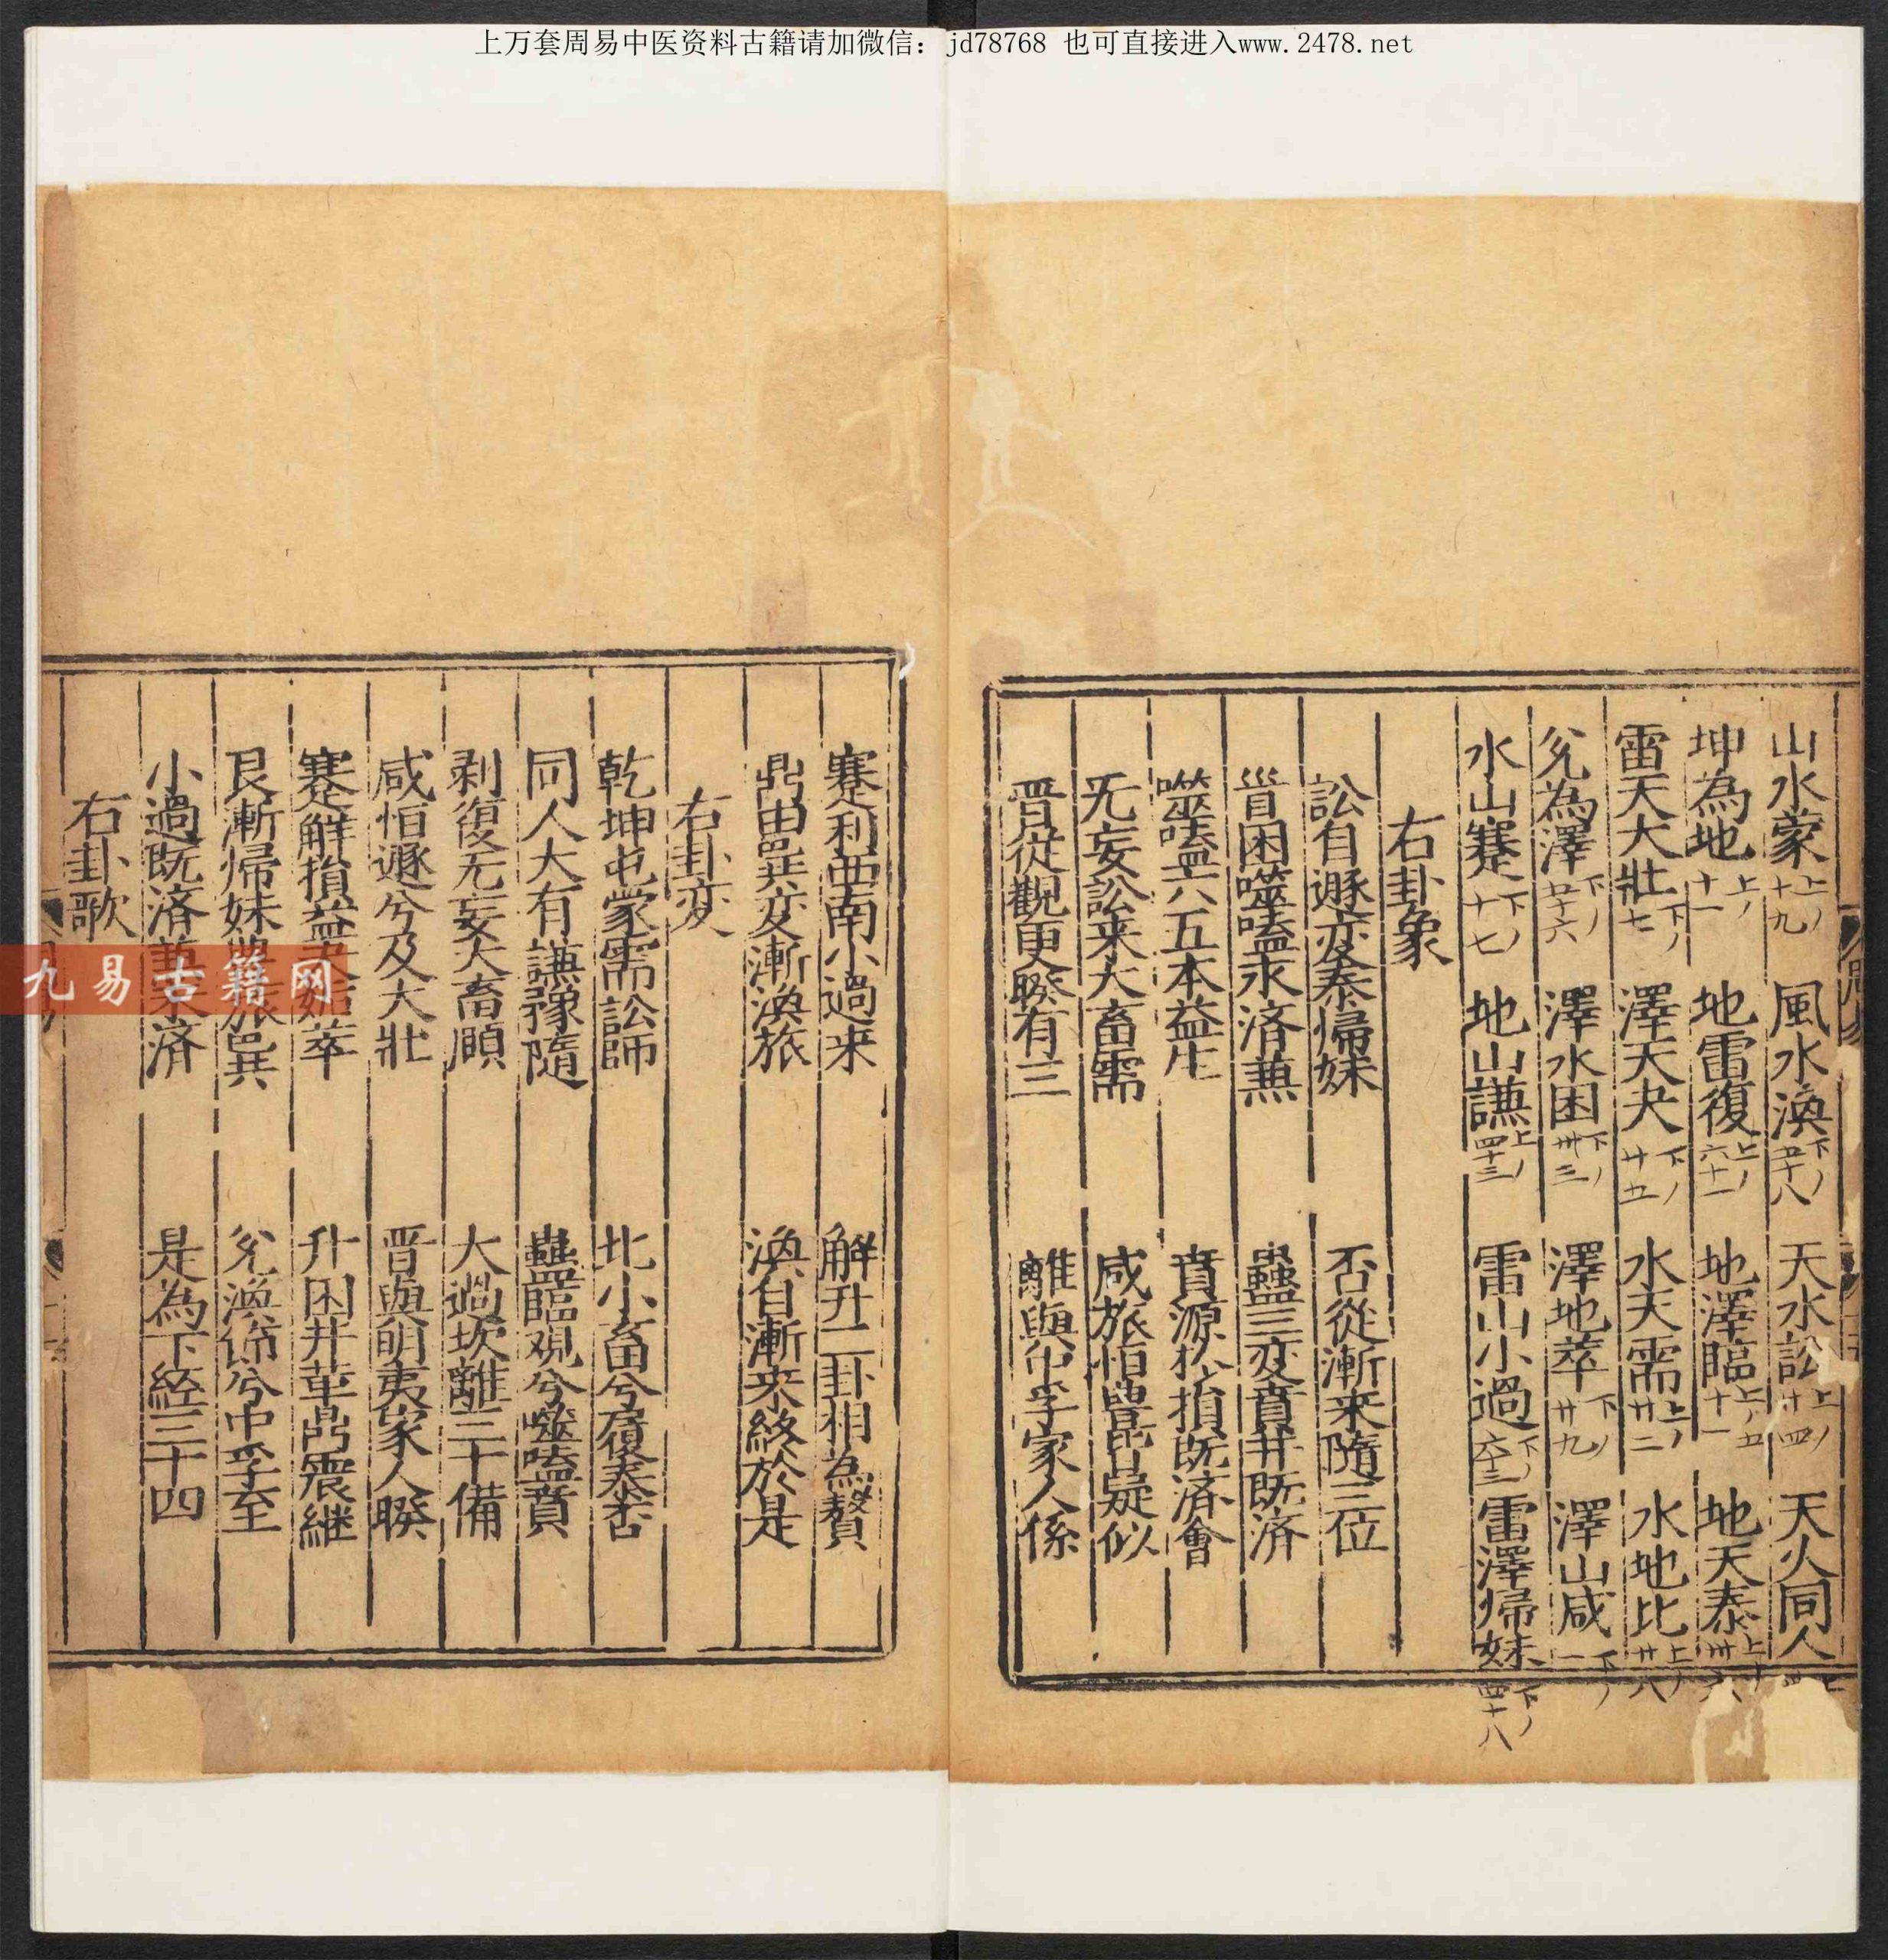 上万套周易中医资料古籍请加微信：jd78768 也可直接进入www.2478.net
山水蒙上十九 風水渙下五十八 天水訟上十四 天火同人
坤為地上十一 地雷復上六十一 地澤臨上五十一 地天泰上
雷天大壯下七 澤天夬下廿五 水天需上廿二 水地比上廿八
兌為澤下五十六 澤水困下卅三 澤地萃下廿九 澤山咸下一
水山蹇下十七 地山謙上四十三 雷山小過下六十三 雷澤帰妹下四十八
右卦象
訟自遯变泰歸妹 否從漸来隨三位
首困噬嗑未済兼 蠱三变賁井既済
噬嗑六五本益生 賁源扵損既済會
无妄訟来大畜需 咸旅恒豊皆疑似
晋從觀更睽有三 離與中孚家人係
蹇利西南小過来 解升二卦相為贅
鼎由巽变漸渙旅 渙自漸来終於是
右卦变
乾坤屯蒙需訟師 比小畜兮履泰否
同人大有謙豫隨 蠱臨观兮噬嗑賁
剥復无妄大畜頤 大過坎離三十備
咸恒遯兮及大壯 晋與明夷家人睽
蹇觧損益夬姤萃 升困井革鼎震継
艮漸帰妹豊旅巽 兌渙節兮中孚至
小過既済兼未済 是為下経三十四
右卦歌
九易古籍网